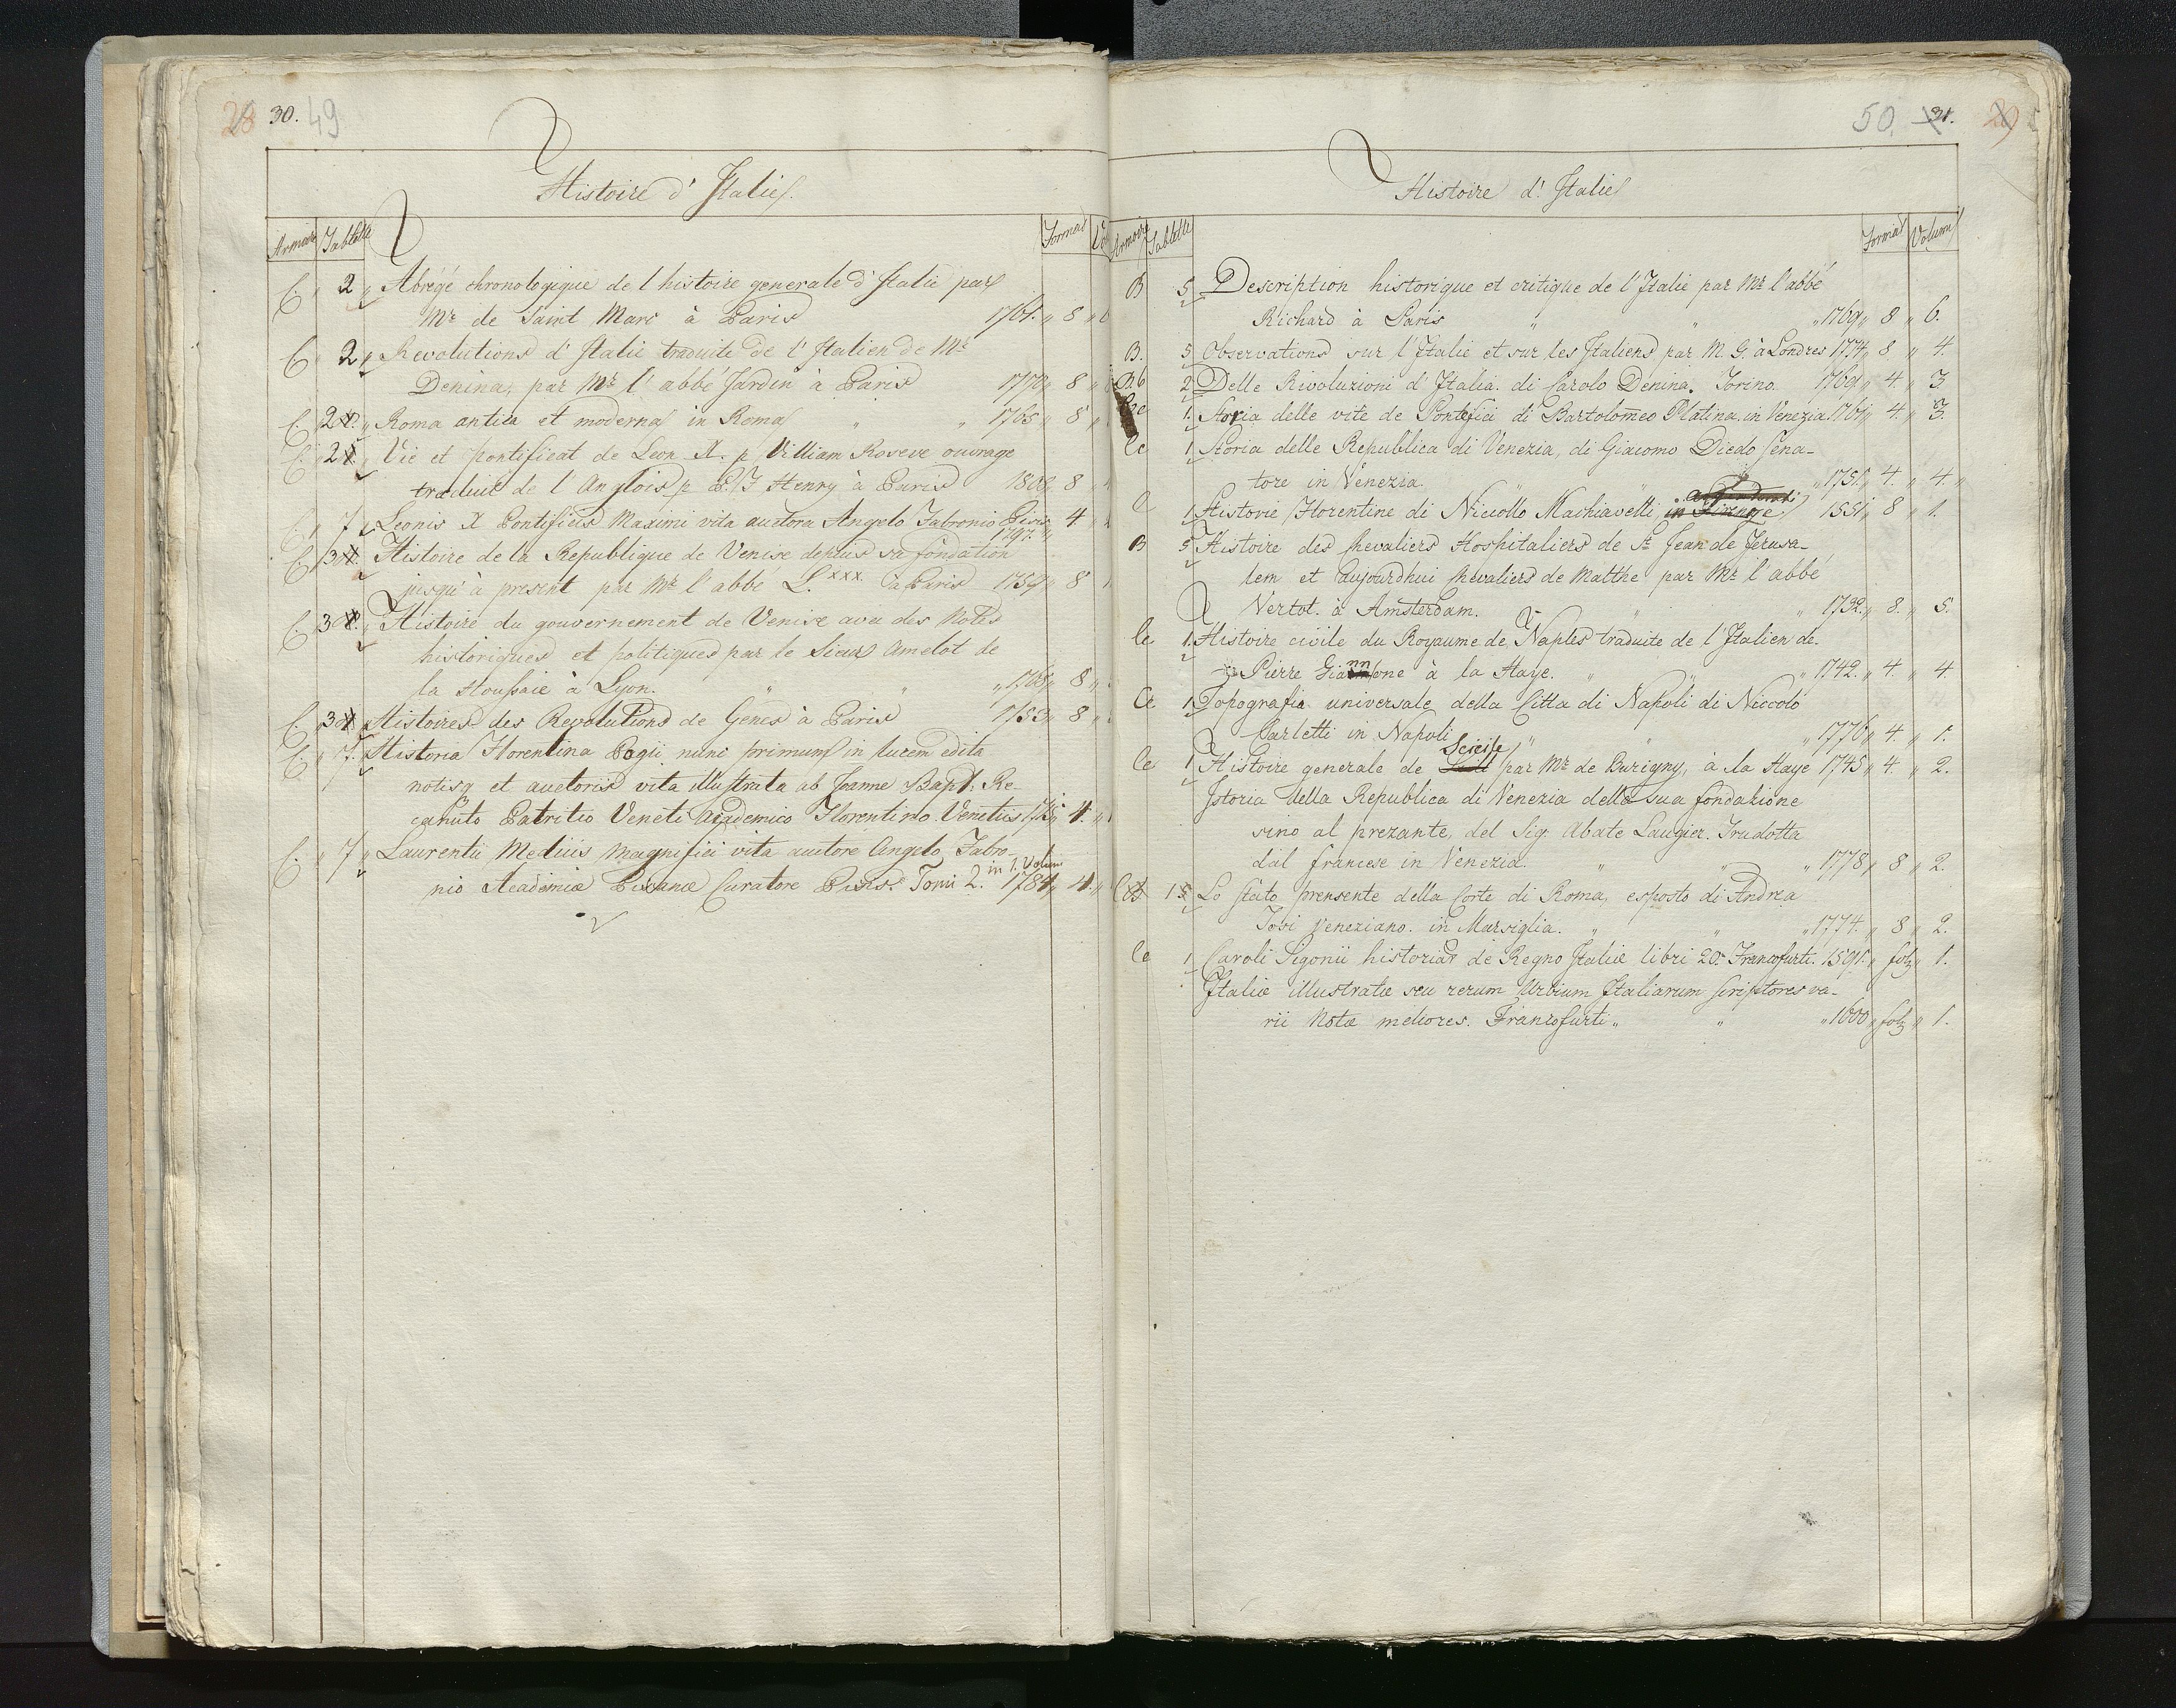 28 30. 49
Histoire d'Italie.
Armoire Tablette Format
C. 2 Abrégé chronologique de l histoire generale d'Italie par
Mr de Saint Marc à Paris 1761. 8
C. 2 Revolutions d'Italie traduite de l'Italien de Mr
Denina, par Mr l'abbé Jardin à Paris 1770 8
C. 2 Roma antica et moderna in Roma 1765 8
C. 2 Vie et pontificat de Leon X. p William Roseve ouvrage
traduit de l Anglois p P. F Henry à Paris 1808 8
7 Leonis X Pontificis Maximi vita auctora Angelo Fabronio Pisis 4
1797.
C 3 Histoire de la Republique de Venise depuis sa fondation
jusqu'à present par Mr l'abbé L.xxx à Paris 1759 8
C 3 Histoire du gouvernement de Venise avec des Notes
historiques et politiques par le Sieur Amelot de
la Houssaie à Lyon. 1768 8
C. 3 Histoires des Revolutions de Genes à Paris 1753 8
C. 7. Historia Florentina Pogii nunc primum in lucem edita
notisq et auctoris vita illustrata ab Joanne Bapt. Re-
canuto Patritio Veneti Academico Florentino Venetiis 1715 4.
C. 7 Laurentii Medicis Magnifici vita auctore Angelo Fabro-
nio Academiæ Pisanæ Curatore Pisis. Tomi 2. in 1. Volum 1784 4.
50. 31. 29
Histoire d'Italie
Armoire Tablette Format Volum
B 5 Description historique et critique de l'Italie par Mr l'abbé
Richard à Paris 1769 8 6.
B. 5 Observations sur l'Italie et sur les Italiens par M. G. à Londres 1774 8. 4.
2 Delle Rivoluzioni d'Italia. di Carolo Denina. Torino. 1769. 4. 3.
1. Storia delle vite de Pontefici di Bartolomeo Platina in Venezia 1761 4. 3.
Cc 1 Storia delle Republica di Venezia, di Giacomo Diedo Sena-
tore in Venezia. 1751. 4. 4.
C 1 Historie Florentine di Niciollo Machiavelli in Firenze 1551 8 1.
B 5 Histoire des Chevaliers Hospitaliers de St Jean de Jerusa-
lem et aujourdhui Chevaliers de Malthe par Mr l'abbé
Vertot. à Amsterdam. 1732. 8. 5.
Cc 1. Histoire civile du Royaume de Naples traduite de l'Italien de
Pierre Giannone à la Haye. 1742. 4. 4.
Cc 1 Topografia universale della Citta di Napoli di Niccolò
Carletti in Napoli 1776 4. 1.
Cc 1 Histoire generale de Scicile par Mr de Burigny, à la Haye 1745 4. 2.
Istoria della Republica di Venezia della sua fondazione
sino al prezante, del Sig: Abate Laugier. Trudotta
dal francese in Venezia. 1778 8 2.
1 Lo stato prensente della Corte di Roma, esposto di Andrea
Tosi Veneziano. in Marsiglia. 1774. 8 2.
Cc 1 Caroli Sigonii historiar de Regno Italiæ libri 20. Francofurti. 1591. fol 1.
Italiæ illustratæ seu rerum Urbium Italiarum scriptores va-
rii Notæ meliores. Francofurti 1600 fol 1.